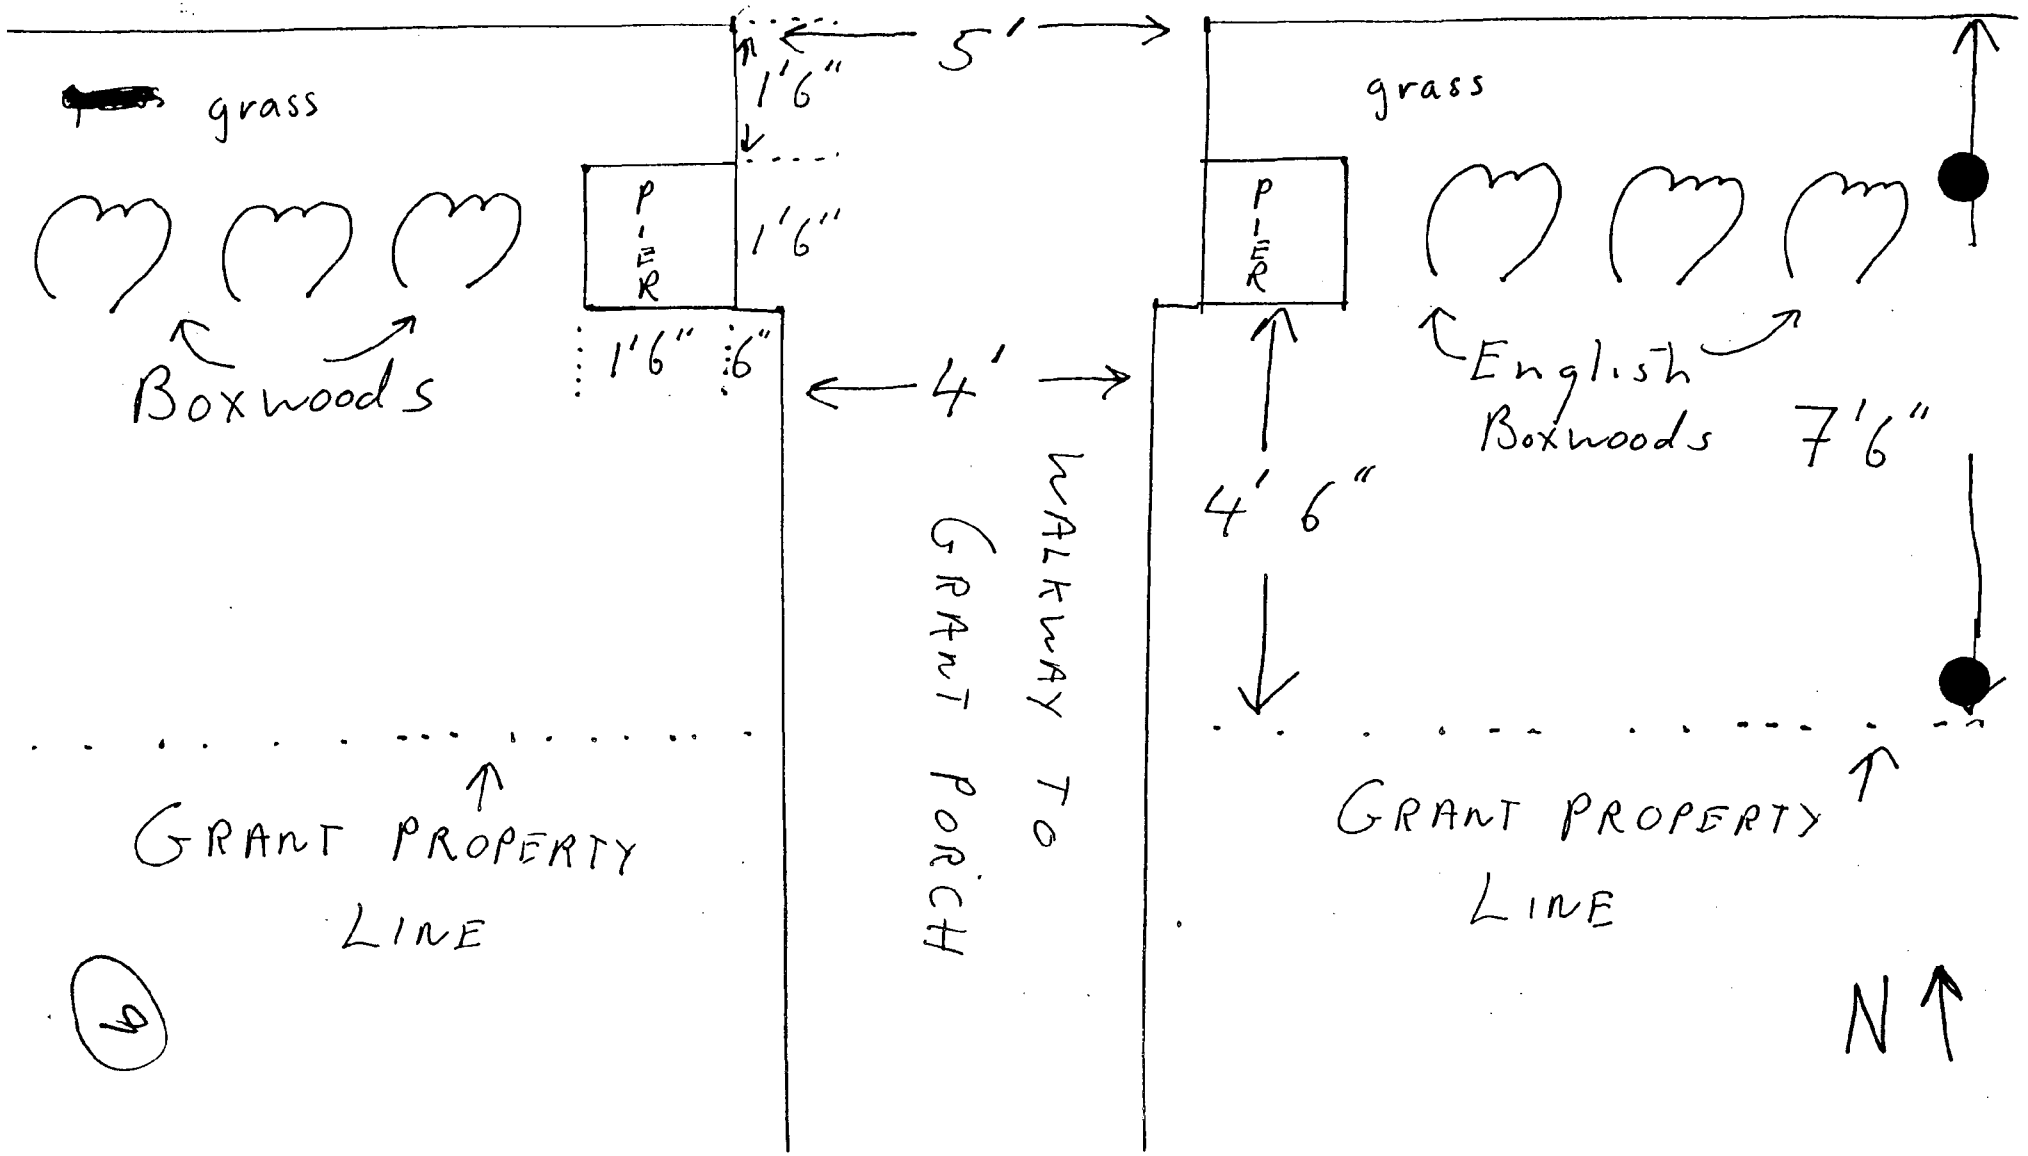 5'
1'6"
grass
grass
PIER
1'6"
PIER
1'6"
6"
4'
Boxwoods
English
Boxwoods
7'6"
4' 6"
WALKWAY TO
GRANT PORCH
GRANT PROPERTY
LINE
GRANT PROPERTY
LINE
N